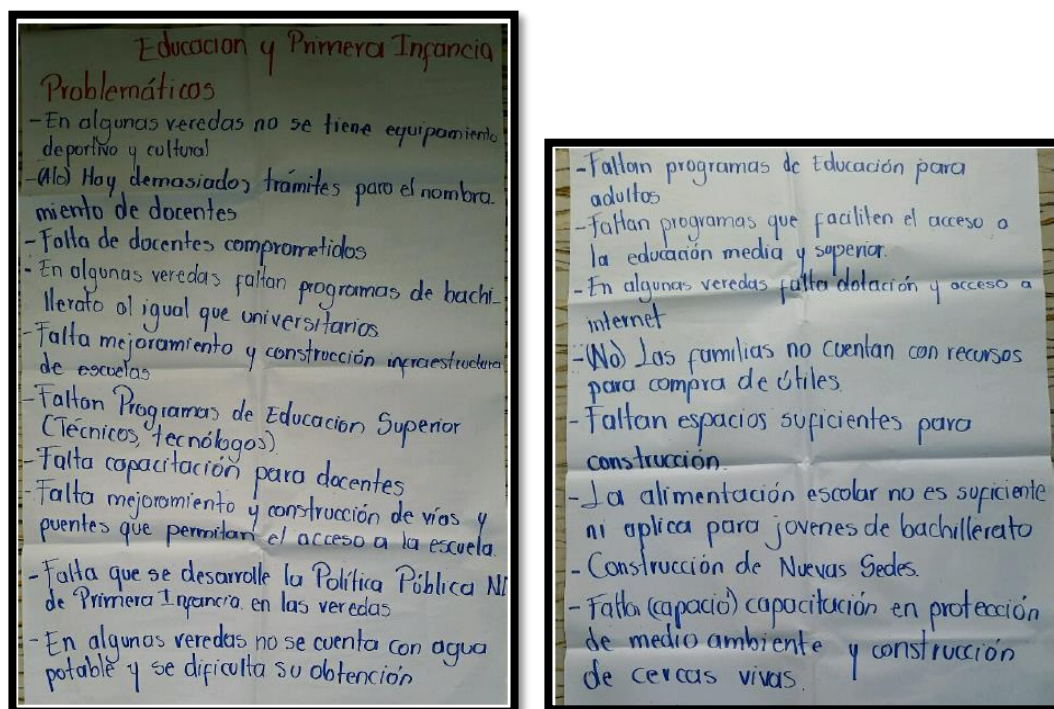 Educacion y Primera Infancia
Problemáticas
- En algunas veredas no se tiene equipamiento
deportivo y cultural
- Hay demasiados trámites para el nombra-
miento de docentes
- Falta de docentes comprometidos
- En algunas veredas faltan programas de bachi-
llerato al igual que universitarios
- Falta mejoramiento y construcción infraestructura
de escuelas
- Faltan Programas de Educacion Superior
(Técnicos, tecnólogos)
- Falta capacitación para docentes
- Falta mejoramiento y construcción de vías y
puentes que permitan el acceso a la escuela.
- Falta que se desarrolle la Política Pública
de Primera Infancia en las veredas
- En algunas veredas no se cuenta con agua
potable y se dificulta su obtención
- Faltan programas de Educación para
adultos
- Faltan programas que faciliten el acceso a
la educación media y superior.
- En algunas veredas falta dotación y acceso a
internet
- (No) Las familias no cuentan con recursos
para compra de útiles.
- Faltan espacios suficientes para
construcción.
- La alimentación escolar no es suficiente
ni aplica para jovenes de bachillerato
- Construcción de Nuevas Sedes.
- Falta (capacio) capacitación en protección
de medio ambiente y construcción
de cercas vivas.